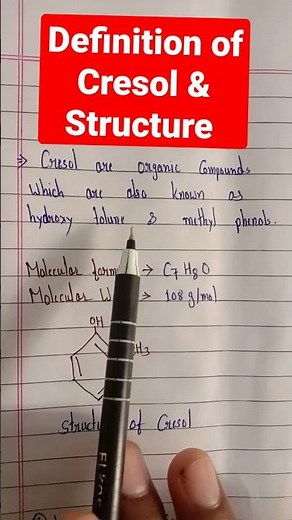 Definition of
Cresol &
Structure
⇒ Cresol are organic Compounds
Which are also known as
hydroxy tolune & methyl phenols.
Molecular form → C7H8O
Molecular W → 108 g/mol
OH
H3
Structu of Cresol